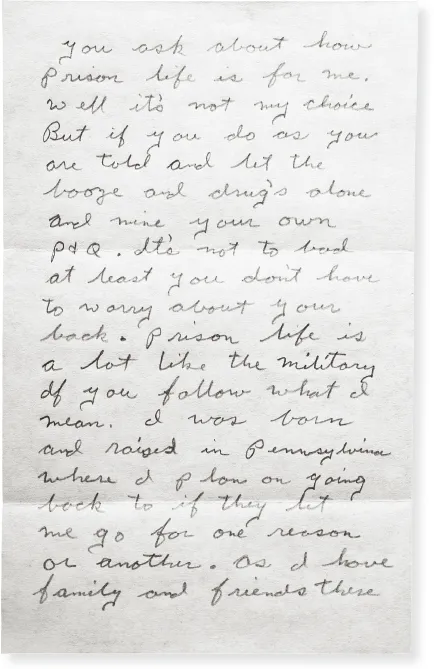 you ask about how
prison life is for me.
well it's not my choice
But if you do as you
are told and let the
booze and drug's alone
and mine your own
P+Q. It's not to bad
at least you don't have
to worry about your
back. prison life is
a lot like the military
If you follow what I
mean. I was born
and raised in Pennsylvina
where I plan on going
back to if they let
me go for one reason
or another. As I have
family and friends there